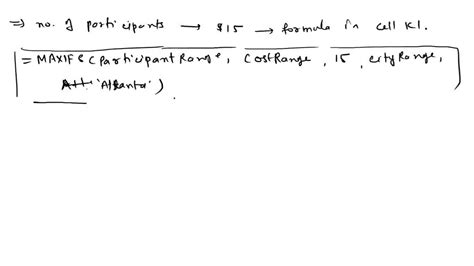 ⇒ no. of participants → $15 → formula in cell K1.
= MAXIFS (ParticipantRange, CostRange, 15, cityRange,
'Atlanta')